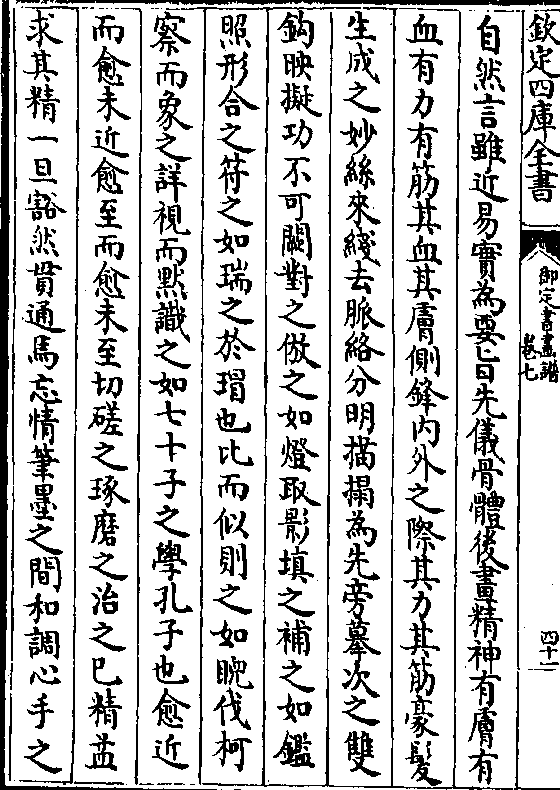 欽定四庫全書
御定書畫譜
卷七
四十一
自然言雖近易實為要旨先儀骨體後盡精神有膚有
血有力有筋其血其膚側鋒內外之際其力其筋豪髮
生成之妙絲來綫去脈絡分明描搨為先旁摹次之雙
鈎映擬功不可闕對之倣之如燈取影填之補之如鑑
照形合之符之如瑞之於瑁也比而似則之如睨伐柯
察而象之詳視而黙識之如七十子之學孔子也愈近
而愈未近愈至而愈未至切磋之琢磨之治之已精益
求其精一旦豁然貫通焉忘情筆墨之間和調心手之